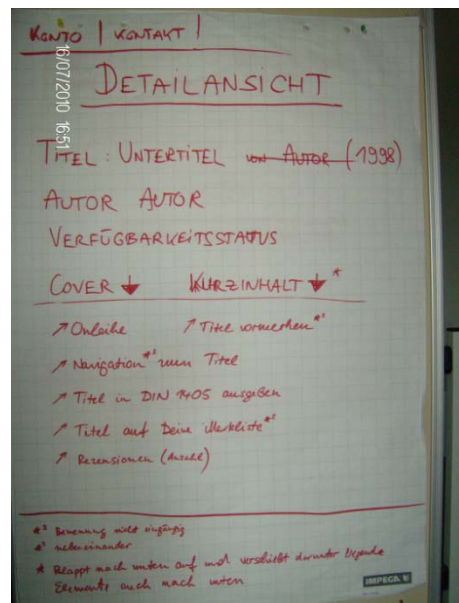 KONTO | KONTAKT |
16/07/2010 16:51
DETAILANSICHT
TITEL : UNTERTITEL von AUTOR (1998)
AUTOR AUTOR
VERFÜGBARKEITSSTATUS
COVER ↓ KURZINHALT ↓ *
↗ Onleihe ↗ Titel vormerken*²
↗ Navigation*² zum Titel
↗ Titel in DIN 1405 ausgeben
↗ Titel auf Deine Merkliste*²
↗ Rezensionen (Anzahl)
*² Benennung nicht eingängig
*³ nebeneinander
* klappt nach unten auf und verschiebt darunter liegende
Elemente auch nach unten
IMPEGA